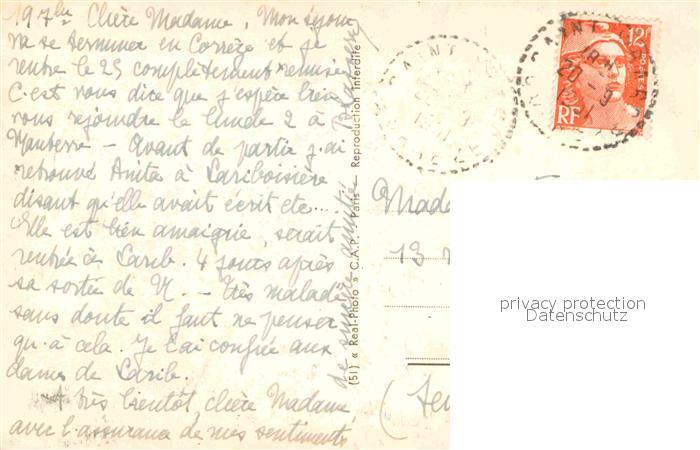 19 7bre Chère Madame, Mon séjour
va se terminer en Corrèze et je
rentre le 25 complètement remise
C'est vous dire que j'espère bien
vous rejoindre le lundi 2 à
Nanterre - Avant de partir j'ai
retrouvé Anita à Lariboisière
disant qu'elle avait écrit etc...
Elle est bien amaigrie, serait
rentrée à Larib. 4 jours après
sa sortie de N. - Très malade
sans doute il faut ne penser
qu'à cela. Je l'ai confiée aux
dames de Larib.
A très bientôt, chère Madame,
avec l'assurance de mes sentiments
de sincère amitié
(51) « Real-Photo » C.A.P. Paris - Reproduction Interdite
SAINT
20 -9
12F
POSTES
RF
Mada
13
privacy protection
Datenschutz